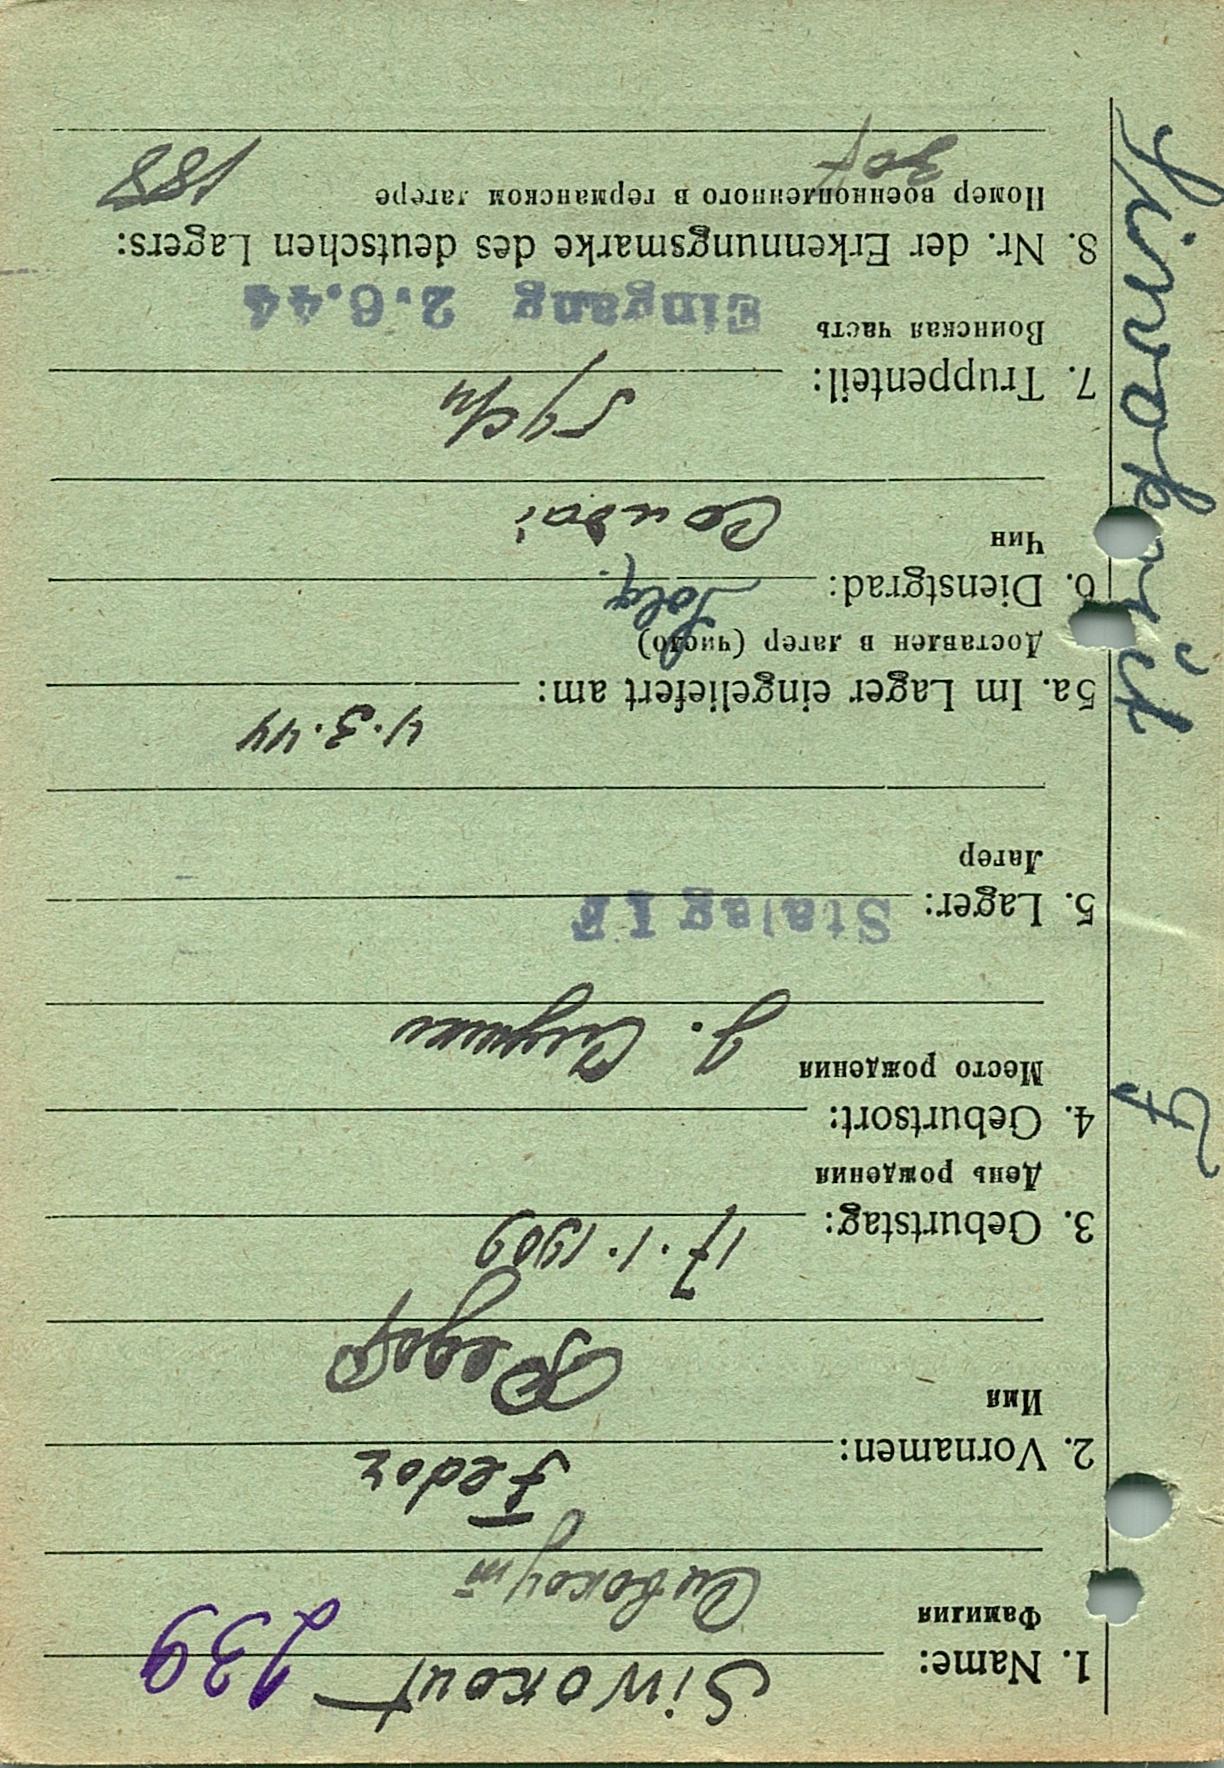 1. Name: Siwokout 239
Фамилия Сивокоут
2. Vornamen: Fedor
Имя Федор
3. Geburtstag: 17.1.1909
День рождения
4. Geburtsort:
Место рождения д.
5. Lager: Stalag I F
Лагерь
5a. Im Lager eingeliefert am: 4.3.44
Доставлен в лагерь (число)
6. Dienstgrad: Sold.
Чин Солдат
7. Truppenteil:
Воинская часть Eingang 2.6.44
8. Nr. der Erkennungsmarke des deutschen Lagers:
Номер военнопленного в германском лагере 188
F